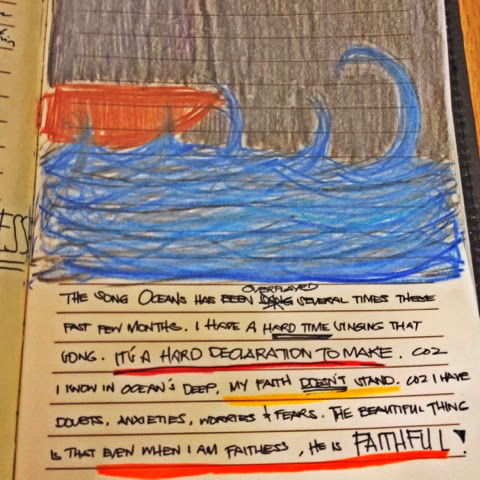 ESS
THE SONG OCEANS HAS BEEN OVERPLAYED SEVERAL TIMES THESE
PAST FEW MONTHS. I HAVE A HARD TIME SINGING THAT
SONG. IT'S A HARD DECLARATION TO MAKE. COZ
I KNOW IN OCEAN'S DEEP, MY FAITH DOESN'T STAND. COZ I HAVE
DOUBTS, ANXIETIES, WORRIES & FEARS. THE BEAUTIFUL THING
IS THAT EVEN WHEN I AM FAITHLESS, HE IS FAITHFUL!